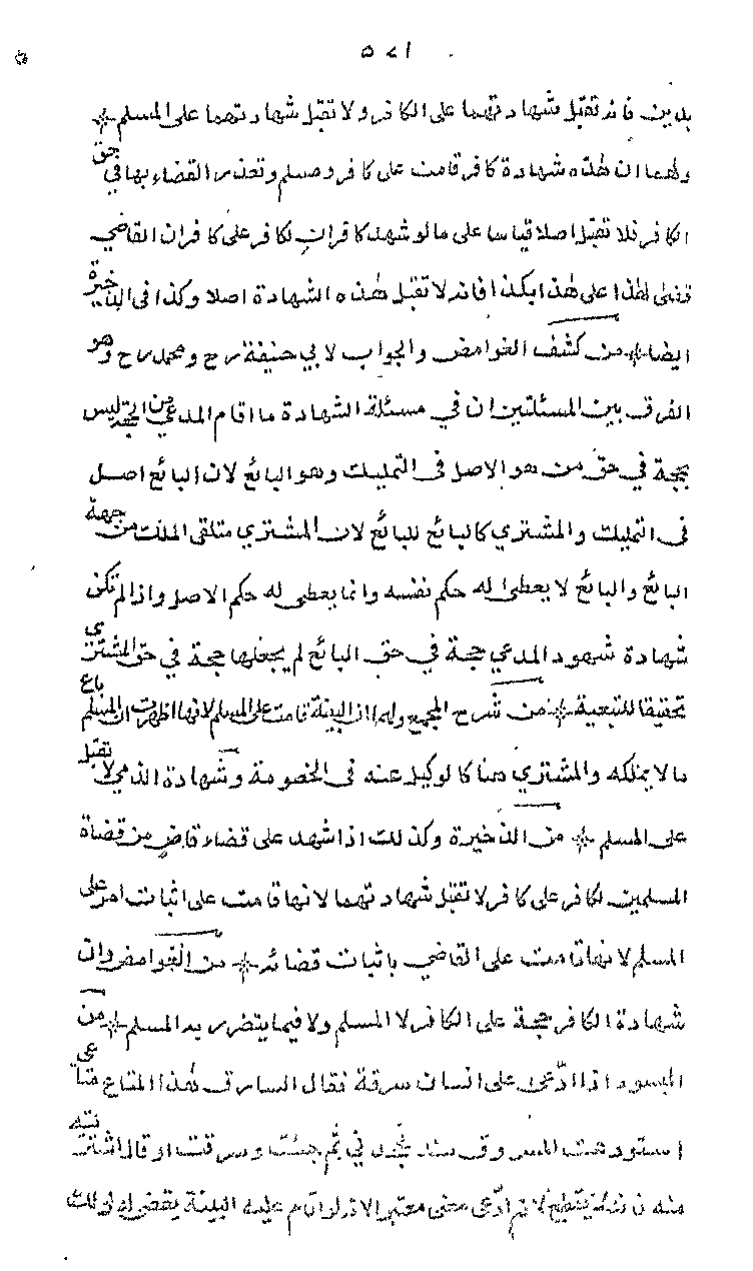 ٥٧١
بدين فانه تقبل شهادتهما على الكافر ولا تقبل شهادتهما على المسلم *
ولهما ان هذه شهادة كافر قامت على كافر ومسلم وتعذر القضاء بها في حق
الكافر فلا تقبل اصلا قياسا على ما لو شهد كافران لكافر على كافر ان القاضي
قضى لهذا على هذا بكذا فانه لا تقبل هذه الشهادة اصلا وكذا في الذخيرة
ايضا * من كشف الغوامض والجواب لابي حنيفة رح ومحمد رح وهو
الفرق بين المسئلتين ان في مسئلة الشهادة ما اقام المدعي من ليس
بحجة في حق من هو الاصل في التمليك وهو البائع لان البائع اصل
في التمليك والمشتري كالبائع للبائع لان المشتري متلقى الملك من جهة
البائع والبائع لا يعطى له حكم نفسه وانما يعطى له حكم الاصل واذا لم تكن
شهادة شهود المدعي حجة في حق البائع لم يجعلها حجة في حق المشتري
تحقيقا للتبعية * من شرح المجمع ولهما ان البينة قامت على المسلم لانها اظهرت ان المسلم باع
ما لا يملكه والمشتري هنا كالوكيل عنه في الخصومة وشهادة الذمي لا تقبل
على المسلم * من الذخيرة وكذلك اذا شهد على قضاء قاض من قضاة
المسلمين لكافر على كافر لا تقبل شهادتهما لانها قامت على اثبات امر على
المسلم لانها قامت على القاضي باثبات قضائه * من الغوامض وان
شهادة الكافر حجة على الكافر لا المسلم ولا فيما يتضرر به المسلم * من
المبسوط اذا ادعى على انسان سرقة فقال السارق هذا المتاع متاعي
استودعت المسروق منه فجحدني ثم جئت وسرقت او قال اشتريته
منه لانه ادعى معنى معتبرا لو اقام عليه البينة يقضى له وذلك